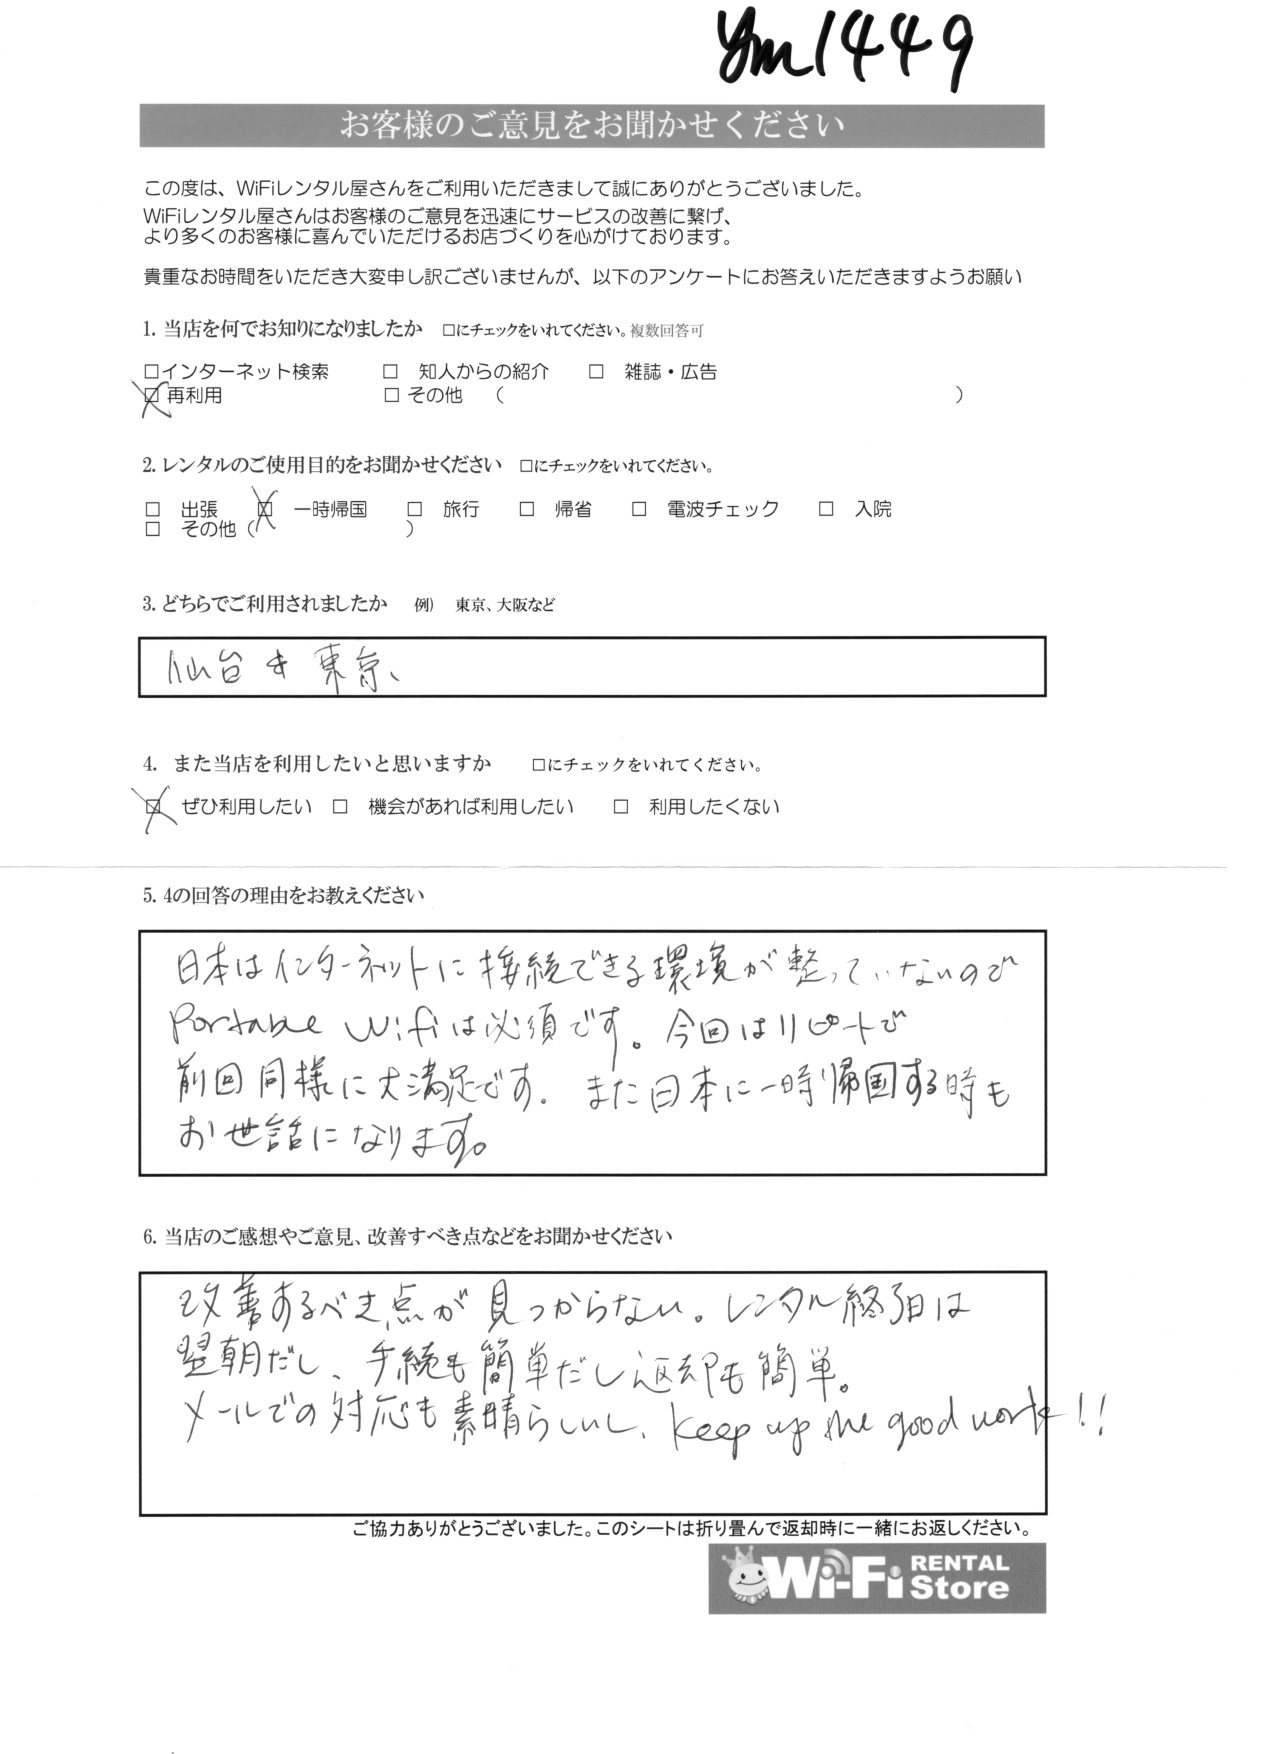 ym1449
お客様のご意見をお聞かせください
この度は、WiFiレンタル屋さんをご利用いただきまして誠にありがとうございました。
WiFiレンタル屋さんはお客様のご意見を迅速にサービスの改善に繋げ、
より多くのお客様に喜んでいただけるお店づくりを心がけております。
貴重なお時間をいただき大変申し訳ございませんが、以下のアンケートにお答えいただきますようお願い
1. 当店を何でお知りになりましたか □にチェックをいれてください。複数回答可
□インターネット検索 □ 知人からの紹介 □ 雑誌・広告
☒再利用 □ その他 ( )
2. レンタルのご使用目的をお聞かせください □にチェックをいれてください。
□ 出張 ☒ 一時帰国 □ 旅行 □ 帰省 □ 電波チェック □ 入院
□ その他 ( )
3. どちらでご利用されましたか 例) 東京、大阪など
仙台 + 東京、
4. また当店を利用したいと思いますか □にチェックをいれてください。
☒ ぜひ利用したい □ 機会があれば利用したい □ 利用したくない
5. 4の回答の理由をお教えください
日本はインターネットに接続できる環境が整っていないので
Portable Wifiは必須です。今回はリピートで
前回同様に大満足です。また日本に一時帰国する時も
お世話になります。
6. 当店のご感想やご意見、改善すべき点などをお聞かせください
改善するべき点が見つからない。レンタル終了日は
翌朝だし、手続も簡単だし返却も簡単。
メールでの対応も素晴らしいし、keep up the good work!!
ご協力ありがとうございました。このシートは折り畳んで返却時に一緒にお返しください。
Wi-Fi RENTAL Store